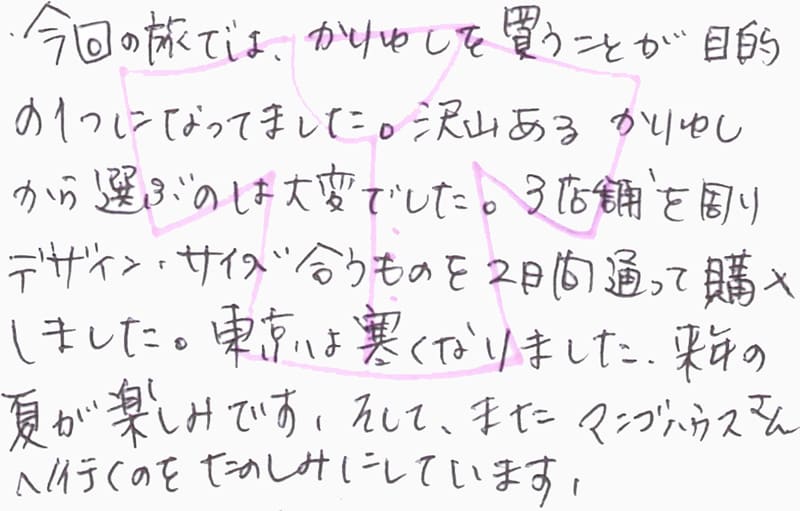 今回の旅では、かりゆしを買うことが目的
の1つになってました。沢山ある かりゆし
から選ぶのは大変でした。3店舗を周り
デザイン・サイズ合うものを2日間通って購入
しました。東京は寒くなりました、来年の
夏が楽しみです。そして、また マンゴハウスさん
へ行くのをたのしみにしています。